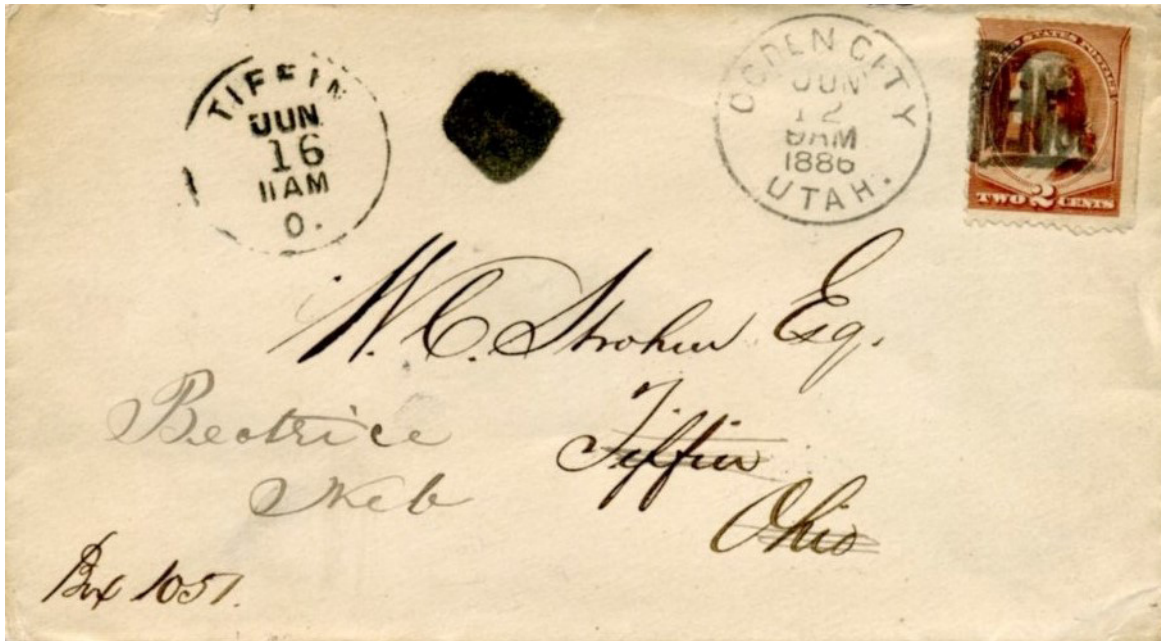 TIFFIN
JUN
16
11 AM
O.
OGDEN CITY
JUN
12
9AM
1886
UTAH.
UNITED STATES POSTAGE
TWO 2 CENTS
W. C. Strohm Esq.
Tiffin
Ohio
Beatrice
Neb
Box 1051.